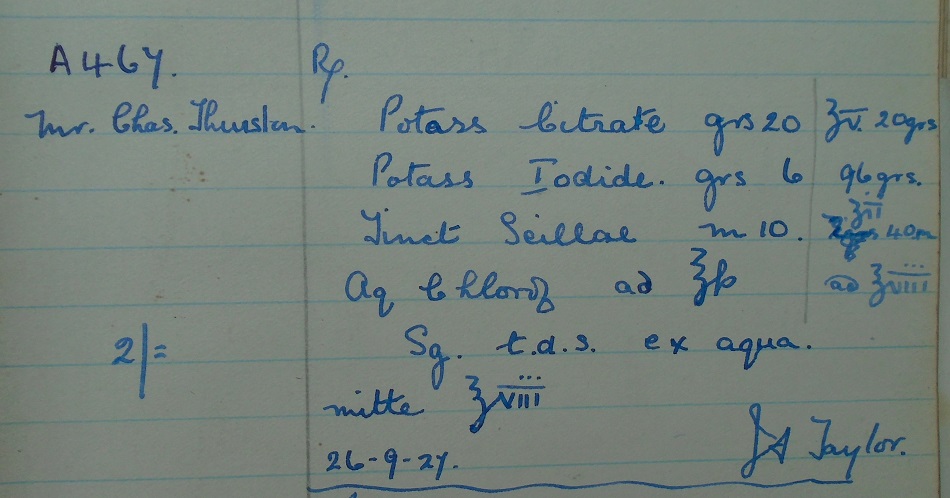 A467. Rp.
Mr. Chas. Thurston. Potass Citrate grs 20 ʒv. 20grs
Potass Iodide. grs 6 96grs.
Tinct Scillae m 10. ʒii 40m
Aq Chlorof ad ℥ß ad ℥viii
2/= Sg. t.d.s. ex aqua.
mitte ℥viii
26-9-27. JA Taylor.